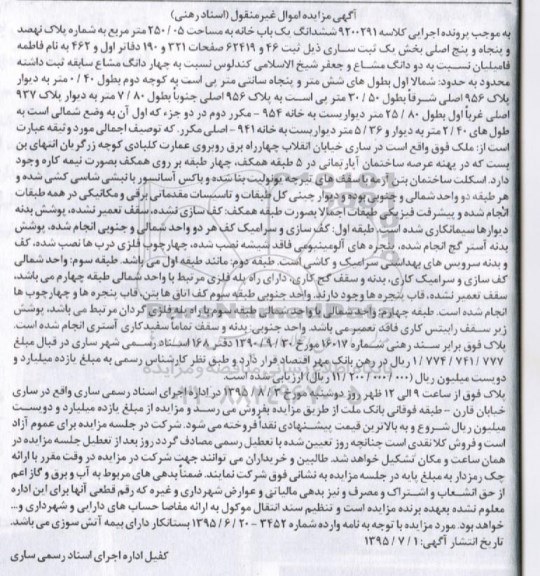 آگهی مزایده اموال غیرمنقول (اسناد رهنی)
به موجب پرونده اجرایی کلاسه ۹۲۰۰۲۹۱ ششدانگ یک باب خانه به مساحت ۲۵۰/۰۵ متر مربع به شماره پلاک نهصد
و پنجاه و پنج اصلی بخش یک ثبت ساری ذیل ثبت ۴۶ و ۶۲۴۱۹ صفحات ۳۲۱ و ۱۹۰ دفاتر اول و ۴۶۲ به نام فاطمه
فامیلیان نسبت به دو دانگ مشاع و جعفر شیخ الاسلامی کندلوس نسبت به چهار دانگ مشاع سابقه ثبت داشته
محدود به حدود: شمالا اول بطول های شش متر و پنجاه سانتی متر پی است به کوچه دوم بطول ۰/۴۰ متر به دیوار
پلاک ۹۵۶ اصلی شرقاً بطول ۳۰/۵۰ متر پی است به پلاک ۹۵۶ اصلی جنوباً بطول ۷/۸۰ متر به دیوار پلاک ۹۳۷
اصلی غرباً اول بطول ۲۵/۸۰ متر دیواریست به خانه ۹۵۴ - مکرر دوم در دو جزء که اول آن به وضع شمالی است به
طول های ۲/۴۰ متر به دیوار و ۵/۳۶ متر دیواریست به خانه ۹۴۱ - اصلی مکرر. که توصیف اجمالی مورد وثیقه عبارت
است از: ملک فوق واقع است در ساری خیابان انقلاب چهارراه برق روبروی عمارت کلبادی کوچه زرگریان انتهای بن
بست که در پهنه عرصه ساختمان آپارتمانی در ۵ طبقه همکف، چهار طبقه بر روی همکف بصورت نیمه کاره وجود
دارد. اسکلت ساختمان بتن آرمه باسقف های تیرچه یونولیت بنا شده و باکس آسانسور با نبشی شاسی کشی شده و
هر طبقه دو واحد شمالی و جنوبی بوده و دیوار چینی کل طبقات و تاسیسات مقدماتی برقی و مکانیکی در همه طبقات
انجام شده و پیشرفت فیزیکی طبقات اجمالا بصورت طبقه همکف: کف سازی نشده، سقف تعمیر نشده، پوشش بدنه
دیوارها سیمانکاری شده است. طبقه اول: کف سازی و سرامیک کف هر دو واحد شمالی و جنوبی انجام شده، پوشش
بدنه آستر گچ انجام شده، پنجره های آلومینیومی فاقد شیشه نصب شده، چهارچوب فلزی درب ها نصب شده، کف
و بدنه سرویس های بهداشتی سرامیک و کاشی است. طبقه دوم: مانند طبقه اول می باشد. طبقه سوم: واحد شمالی
کف سازی و سرامیک کاری، بدنه و سقف گچ کاری، دارای راه پله فلزی مرتبط با واحد شمالی طبقه چهارم می باشد،
سقف تعمیر نشده، قاب پنجره ها وجود دارند. واحد جنوبی طبقه سوم کف اتاق ها بتن، قاب پنجره ها و چهارچوب ها
انجام شده است. طبقه چهارم: واحد شمالی با واحد شمالی طبقه سوم با راه پله فلزی گردان مرتبط می باشد، پوشش
زیر سقف رابیتس کاری فاقد تعمیر می باشد. واحد جنوبی: بدنه و سقف تماماً سفیدکاری آستری انجام شده است.
پلاک فوق برابر سند رهنی شماره ۱۶۰۱۷ مورخ ۱۳۹۰/۹/۳۰ دفتر ۱۶۸ اسناد رسمی شهر ساری در قبال مبلغ
۱/۷۷۴/۷۴۱/۷۷۷ ریال در رهن بانک مهر اقتصاد قرار دارد و طبق نظر کارشناس رسمی به مبلغ یازده میلیارد و
دویست میلیون ریال (۱۱/۲۰۰/۰۰۰/۰۰۰ ریال) ارزیابی شده است.
پلاک فوق از ساعت ۹ الی ۱۲ ظهر روز دوشنبه مورخ ۱۳۹۵/۸/۳ در اداره اجرای اسناد رسمی ساری واقع در ساری
خیابان قارن - طبقه فوقانی بانک ملت از طریق مزایده بفروش می رسد و مزایده از مبلغ یازده میلیارد و دویست
میلیون ریال شروع و به بالاترین قیمت پیشنهادی نقداً فروخته می شود. شرکت در جلسه مزایده برای عموم آزاد
است و فروش کلا نقدی است چنانچه روز تعیین شده با تعطیل رسمی مصادف گردد روز بعد از تعطیل جلسه مزایده در
همان ساعت و مکان تشکیل خواهد شد. طالبین و خریداران می توانند جهت شرکت در مزایده در وقت مقرر با ارائه
چک رمزدار به مبلغ پایه در جلسه مزایده به نشانی فوق شرکت نمایند. ضمناً بدهی های مربوط به آب و برق و گاز اعم
از حق انشعاب و اشتراک و مصرف و نیز بدهی مالیاتی و عوارض شهرداری و غیره که رقم قطعی آنها برای این اداره
معلوم نشده بعهده برنده مزایده است و تنظیم سند انتقال موکول به ارائه مفاصا حساب های دارایی و شهرداری و...
خواهد بود. مورد مزایده با توجه به نامه وارده شماره ۳۴۵۲ - ۱۳۹۵/۶/۲۰ بستانکار دارای بیمه آتش سوزی می باشد.
تاریخ انتشار آگهی: ۱۳۹۵/۷/۱
کفیل اداره اجرای اسناد رسمی ساری